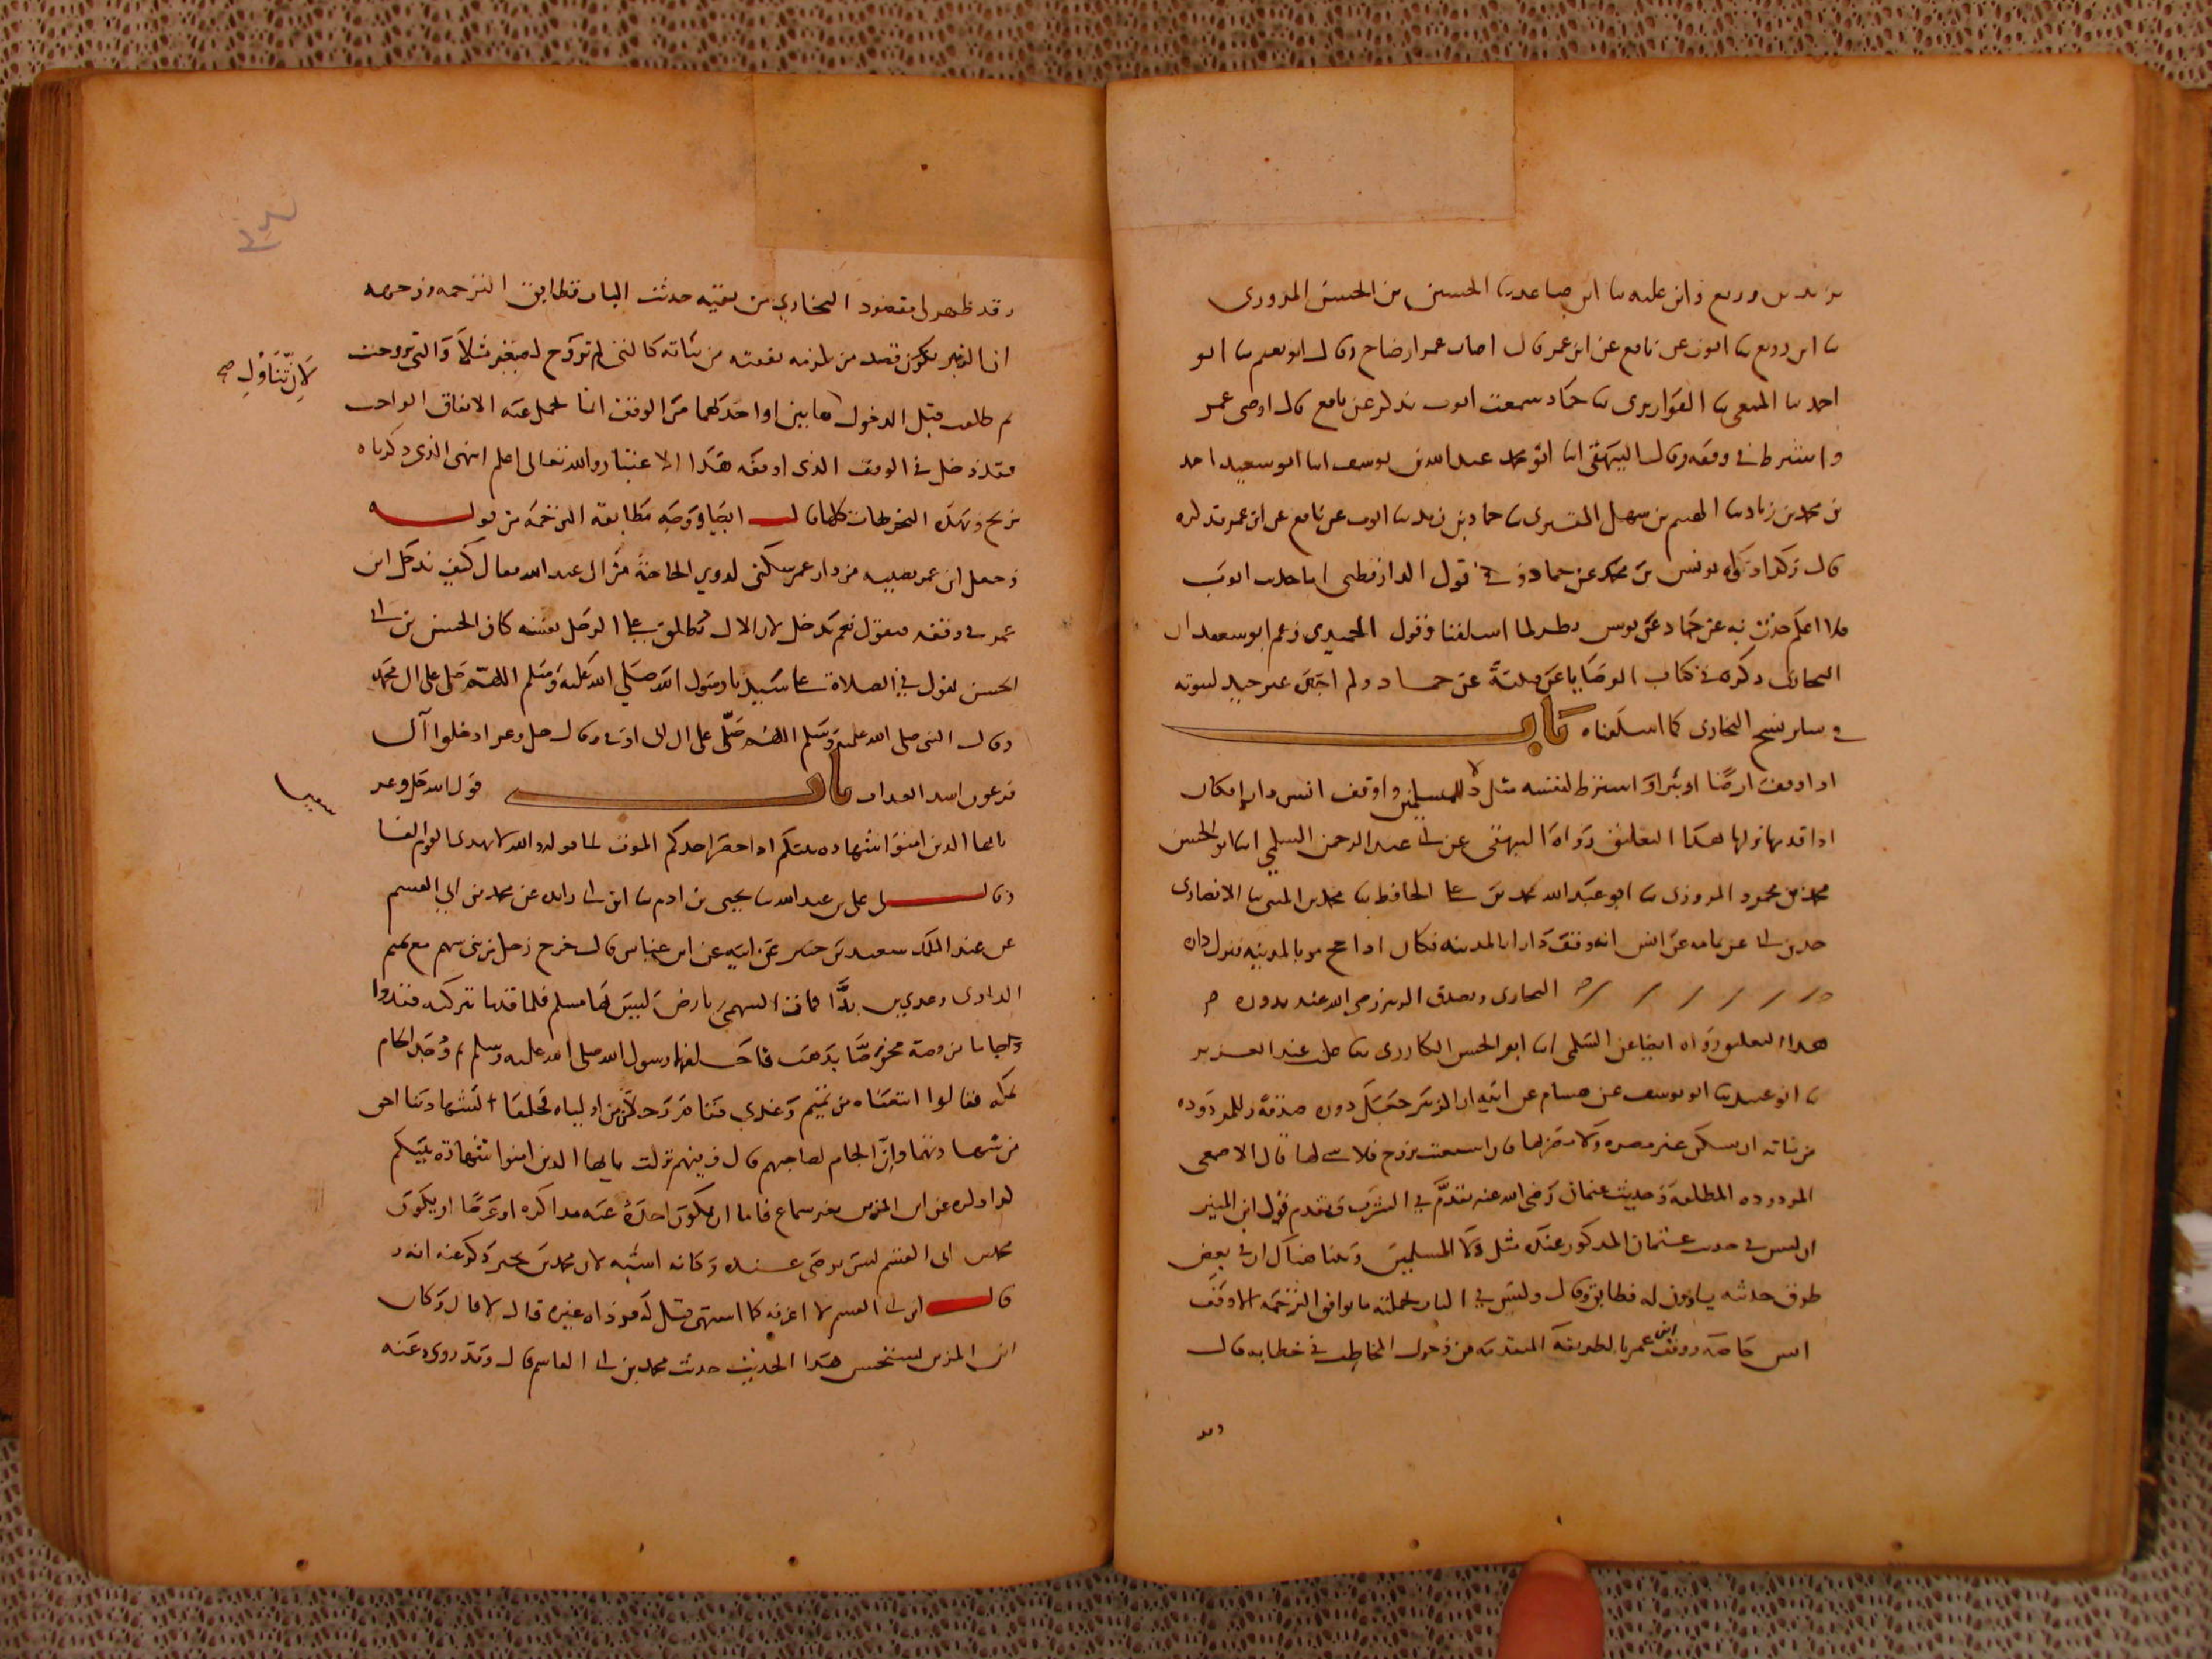 يزيد بن زريع وابن عليه سا ابن صاعد سا الحسين بن الحسن المروزى
سا ابن زريع سا ايوب عن نافع عن ابن عمر قال اصاب عمر ارضا ح وقال ابو نعيم سا ابو
احمد سا المنيعى سا القواريرى سا حماد سمعت ايوب يذكر عن نافع قال اوصى عمر
واشترط فى وقفه وقال البيهقى انا ابو محمد عبد الله بن يوسف انا ابو سعيد احمد
بن محمد بن زياد سا الهيثم بن سهل التسترى سا حماد بن زيد سا ايوب عن نافع عن ابن عمر فذكره
قال وكذا رواه يونس بن محمد عن حماد وفى قول الدارقطنى اما حديث ايوب
فلا اعلم حدث به عن حماد غير يونس نظر لما اسلفنا وقول الحميدى زعم ابو مسعود ان
البخارى ذكره فى كتاب الوصايا عن قتيبة عن حماد ولم اجده غير جيد لثبوته
فى سائر نسخ البخارى كما اسلفناه باب
اذا اوقف ارضا او بئرا او اشترط لنفسه مثل دلا المسلمين واوقف انس دارا فكان
اذا قدمها نزلها هذا التعليق رواه البيهقى عن ابى عبد الرحمن السلمى انا ابو الحسن
محمد بن محمود المروزى سا ابو عبد الله محمد بن على الحافظ سا محمد بن المثنى سا الانصارى
حدثنى ابى عن ثمامه عن انس انه وقف دارا بالمدينه فكان اذا حج مر بالمدينه فنزل داره
البخارى وتصدق الزبير رضى الله عنه بدوره
هذا التعليق رواه ايضا عن السلمى انا ابو الحسن الكارزى سا على بن عبد العزيز
سا ابو عبيد سا ابو يوسف عن هشام عن ابيه ان الزبير جعل دوره صدقة وللمردوده
من بناته ان تسكن غير مضره ولا مضر بها فان استغنت بزوج فلا شى لها قال الاصمعى
المردوده المطلقه وحديث عثمان رضى الله عنه تقدم فى الشرب وتقدم قول ابن المنير
ان ليس فى حديث عثمان المذكور عنده مثل دلا المسلمين وقلنا هناك ان فى بعض
طرق حديثه يساوون له فطابق وقال وليس فى الباب بجملته ما يوافق الترجمه الا وقف
انس خاصه ووقف ابن عمر بالطريقه المتقدمه من دخول المخاطب فى خطابه قال
وقد
وقد ظهر لى مقصود البخارى من بقيه حديث الباب فطابق الترجمه ووجهه
ان الزبير يكون قصد من تلزمه نفقته من بناته كالتى لم تزوج لصغر مثلا والتى تزوجت
لان تناول صح
ثم طلقت قبل الدخول هاتين او احديهما من الوقف انما يحمل عنه الانفاق الواجب
فقد دخل فى الوقف الذى اوقفه هذا الاعتبار والله تعالى اعلم انتهى الذى ذكرناه
من تخريج هذه التخريجات كلها قال ايضا ووجه مطابقة الترجمه من قوله
وجعل ابن عمر نصيبه من دار عمر سكنى لذوى الحاجة من ال عبد الله فقال كيف يدخل ابن
عمر فى وقفه فيقول نعم يدخل لان الال تطلق على الرجل نفسه كان الحسن بن ابى
الحسن يقول فى الصلاة على سيدنا رسول الله صلى الله عليه وسلم اللهم صل على ال محمد
وقال النبى صلى الله عليه وسلم اللهم صل على ال ابى اوفى وقال جل وعز ادخلوا آل
فرعون اشد العذاب باب قول الله جل وعز
يا ايها الذين امنوا شهادة بينكم اذا حضر احدكم الموت الى قوله والله لا يهدى القوم الفا
سقين
وقال لى على بن عبد الله سا يحيى بن ادم سا ابن ابى زايده عن محمد بن ابى القسم
عن عبد الملك بن سعيد بن جبير عن ابيه عن ابن عباس قال خرج رجل من بنى سهم مع تميم
الدارى وعدى بن بدا فمات السهمى بارض ليس بها مسلم فلما قدما بتركته فقدوا
جاما من فضة مخوصا بذهب فاحلفهما رسول الله صلى الله عليه وسلم ثم وجد الجام
بمكه فقالوا ابتعناه من تميم وعدى فقام رجلان من اوليائه فحلفا لشهادتنا احق
من شهادتهما وان الجام لصاحبهم قال وفيهم نزلت يا ايها الذين امنوا شهادة بينكم
محمد بن ابى القسم ليس يرضى عنده وكانه اشبه لان محمد بن بحير ذكر عنه انه
قال ابن ابى القسم لا اعرفه كما اشتهى قيل له فرواه غيره قال لا قال وكان
ابن المدينى يستحسن هذا الحديث حديث محمد بن ابى القاسم قال وقد روى عنه